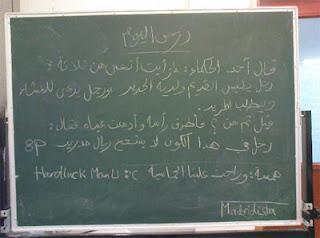 درس اليوم
قال أحد الحكماء: ما رأيت أتعس من ثلاثة:
رجل يلبس القديم ولديه الجديد ورجل يدعى للعشاء
ويطلب المزيد.
قيل ثم من؟ فأطرق رأسه وأدمعت عيناه فقال:
رجل في هذا الكون لا يشجع ريال مدريد 8P
همسة: وراحت علينا الخماسية :( Hardluck Man U
Madridista